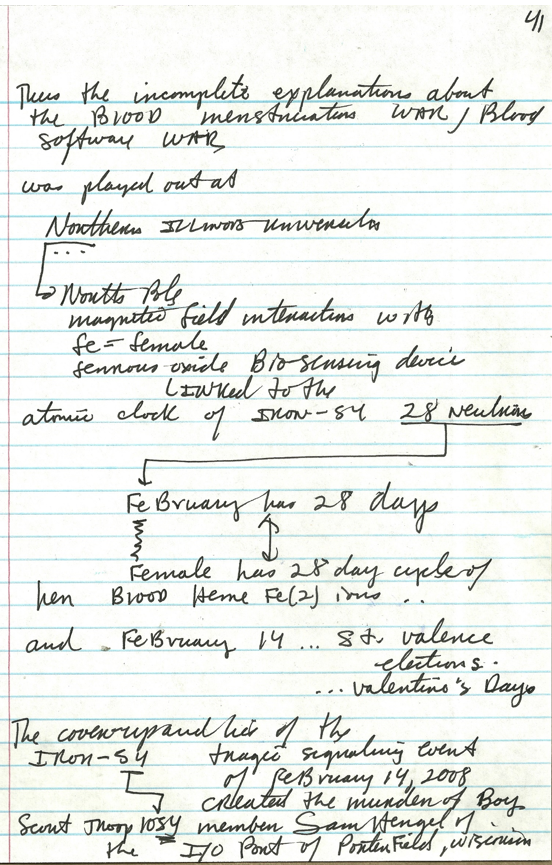 41
Thus the incomplete explanations about
the Blood menstruation WAR / Blood
software WAR,
was played out at
Northern Illinois University
...
North Pole
magnetic field interactions with
fe = female
ferrous-oxide Bio-sensing device
LINKed to the
atomic clock of IRON-54 28 neutrons
FeBruary has 28 days
Female has 28 day cycle of
her Blood Heme Fe(2) ions ..
and FeBruary 14 ... 8th valence
elections.
... valentino's Days
The coverup and lies of the
IRON-54 tragic signaling event
of FeBruary 14, 2008
created the murder of Boy
Scout Troop 1054 member Sam Hengel of
the I/O Port of PorterField, Wisconsin